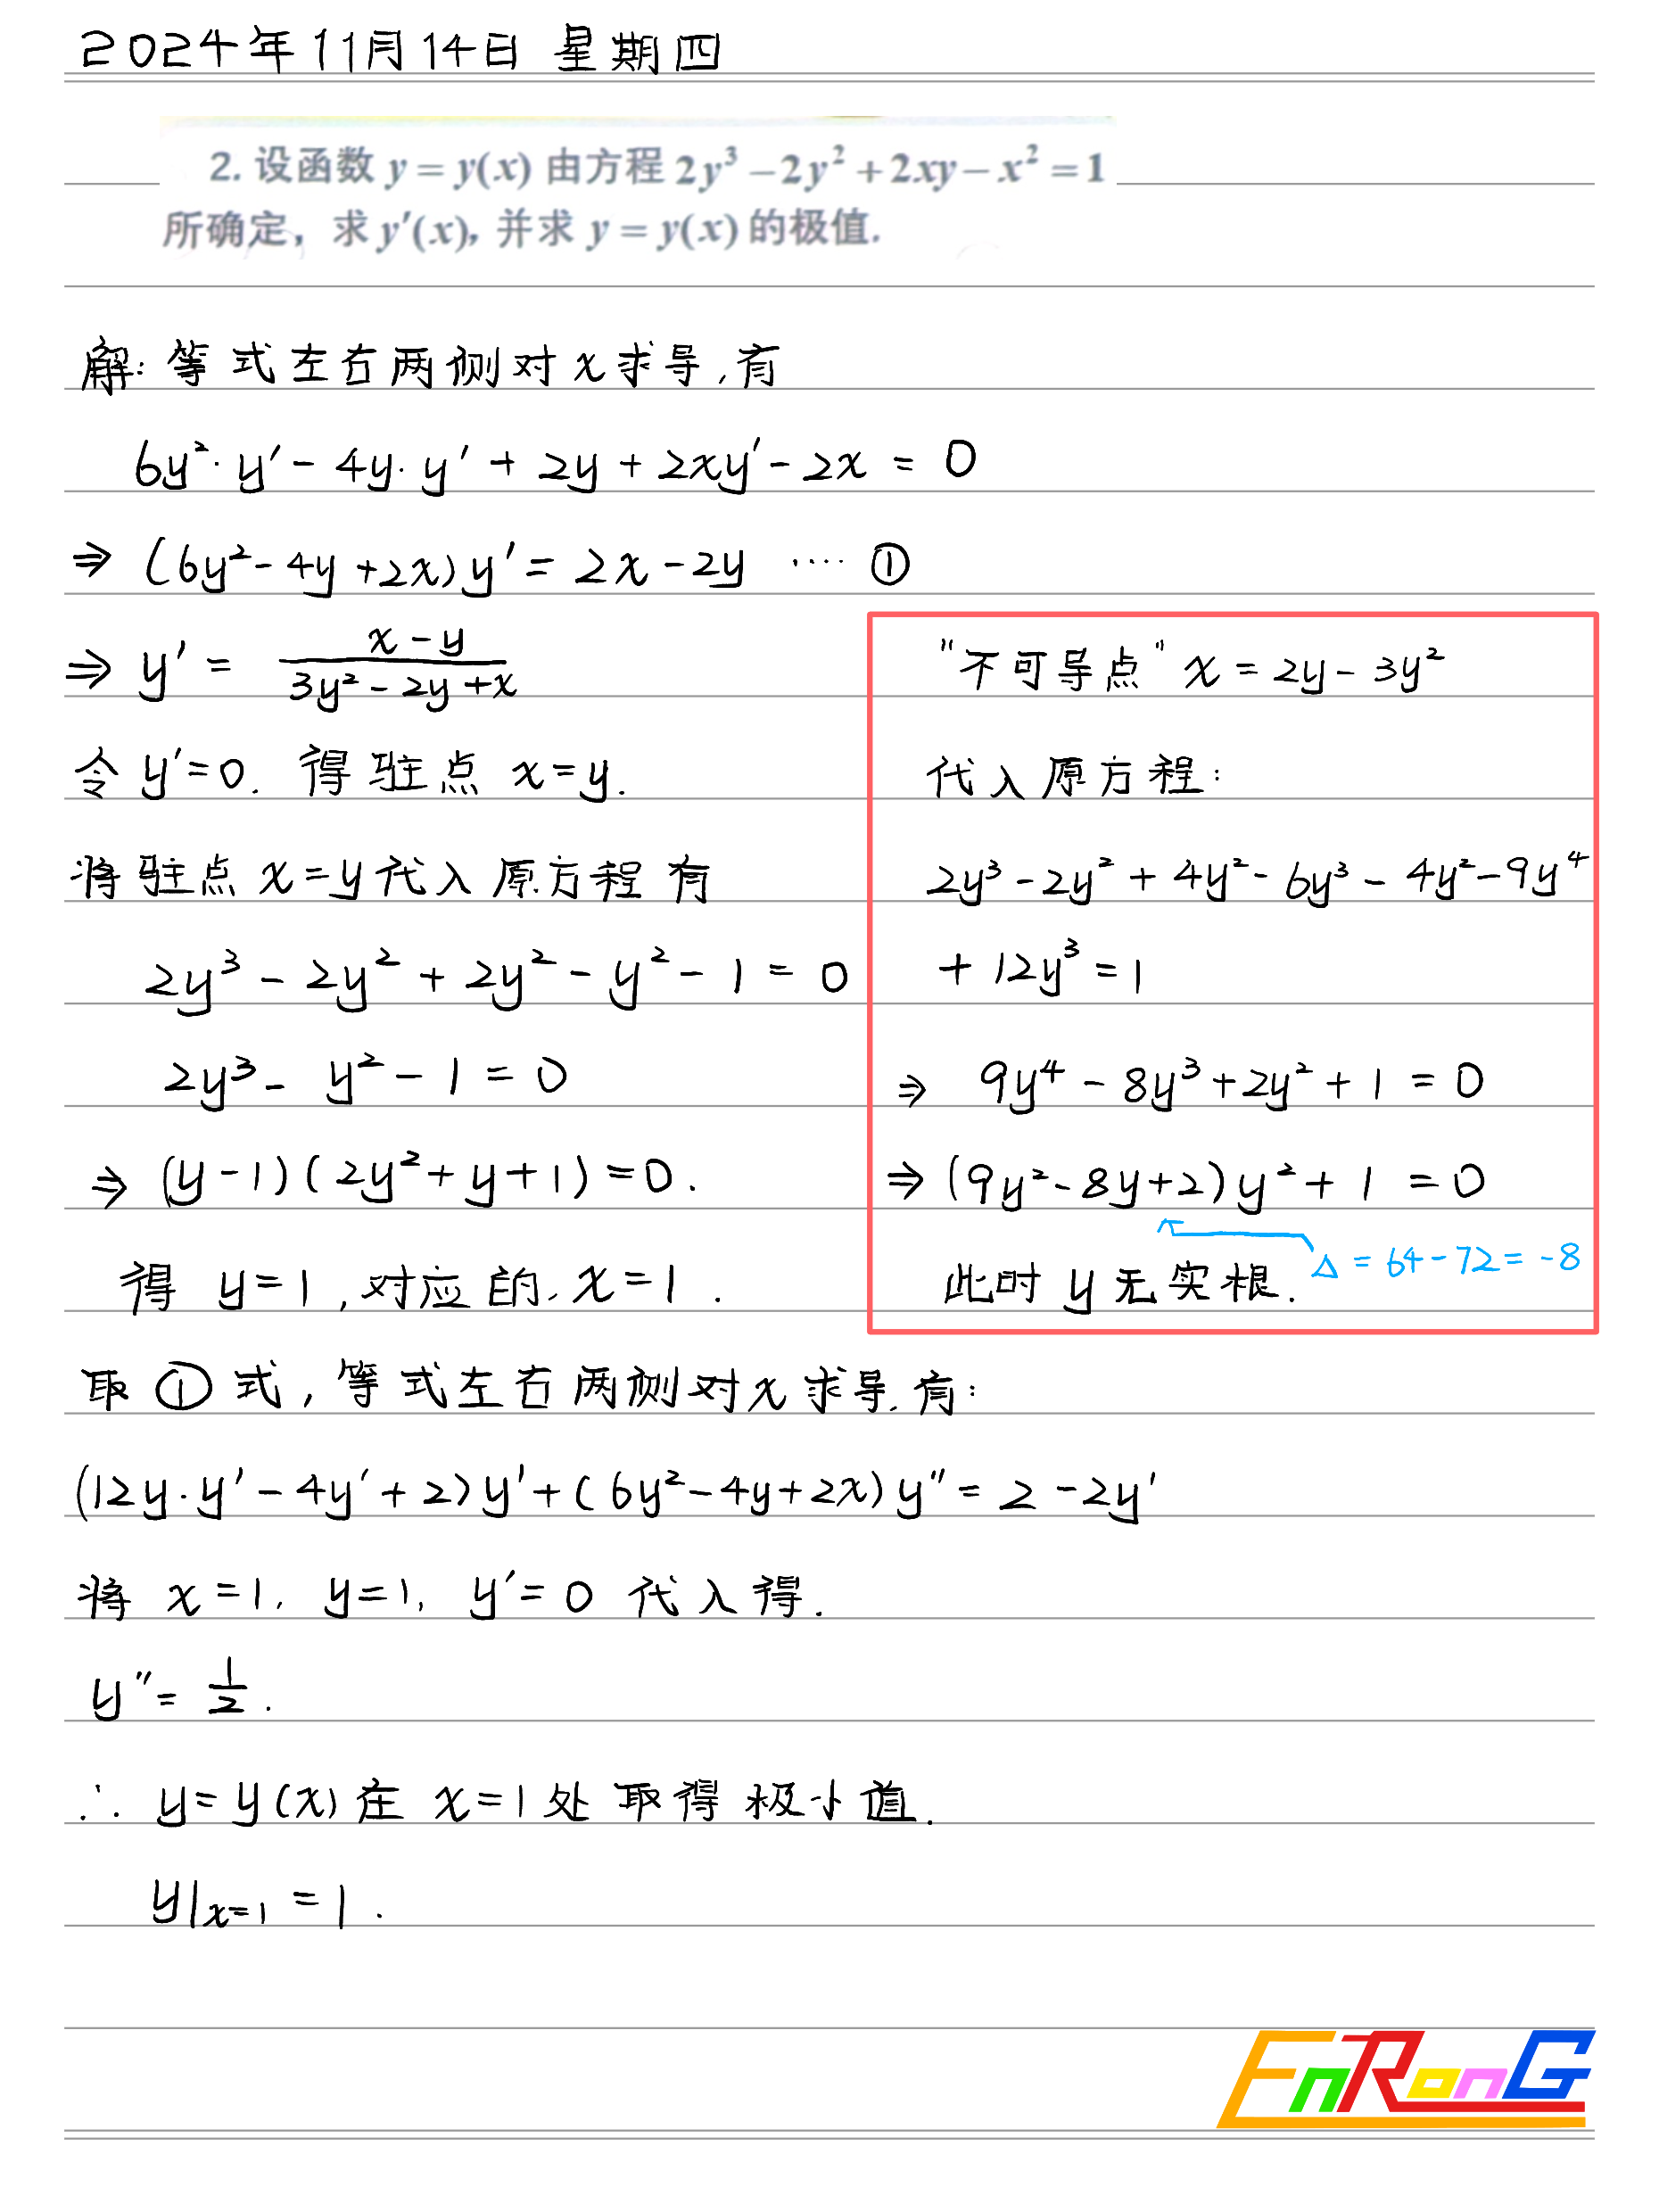 2024年11月14日 星期四
2. 设函数 y = y(x) 由方程 2y³ − 2y² + 2xy − x² = 1
所确定，求 y′(x)，并求 y = y(x) 的极值.
解: 等式左右两侧对x求导,有
6y²·y′ − 4y·y′ + 2y + 2xy′ − 2x = 0
⇒ (6y² − 4y + 2x) y′ = 2x − 2y ···· ①
⇒ y′ = (x − y)/(3y² − 2y + x)
令 y′=0. 得驻点 x=y.
将驻点 x=y代入原方程有
2y³ − 2y² + 2y² − y² − 1 = 0
2y³ − y² − 1 = 0
⇒ (y−1)(2y²+y+1)=0.
得 y=1,对应的,x=1.
"不可导点" x = 2y − 3y²
代入原方程:
2y³ − 2y² + 4y² − 6y³ − 4y² − 9y⁴
+ 12y³ = 1
⇒ 9y⁴ − 8y³ + 2y² + 1 = 0
⇒ (9y² − 8y + 2) y² + 1 = 0
Δ = 64 − 72 = −8
此时 y 无实根.
取①式,等式左右两侧对x求导.有:
(12y·y′ − 4y′ + 2) y′ + (6y² − 4y + 2x) y″ = 2 − 2y′
将 x=1, y=1, y′=0 代入得.
y″ = 1/2.
∴ y=y(x)在 x=1处取得极小值.
y|x=1 = 1.
EnRonG